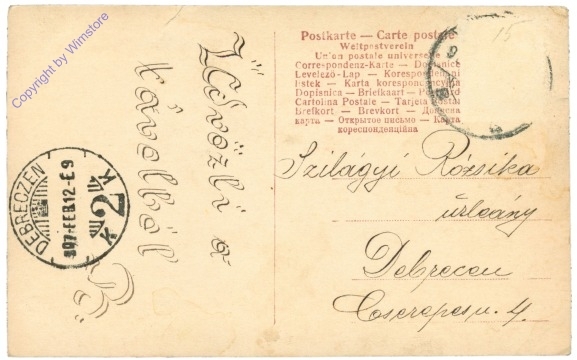 Copyright by Wimstore
Postkarte — Carte postale
Weltpostverein
Union postale universelle
Correspondenz-Karte — Dopisnice
Levelező-Lap — Korespondenční
lístek — Karta korespondencyjna
Dopisnica — Briefkaart — Postcard
Cartolina Postale — Tarjeta postal
Brefkort — Brevkort — Дописна
карта — Открытое письмо — Карта
кореспонденційна
15
Üdvözli a
távolból
DEBRECZEN
907 FEB 12-E 9
K 2 K
Szilagyi Rózsika
úrleány
Debrecen
Cserepes u. 4.